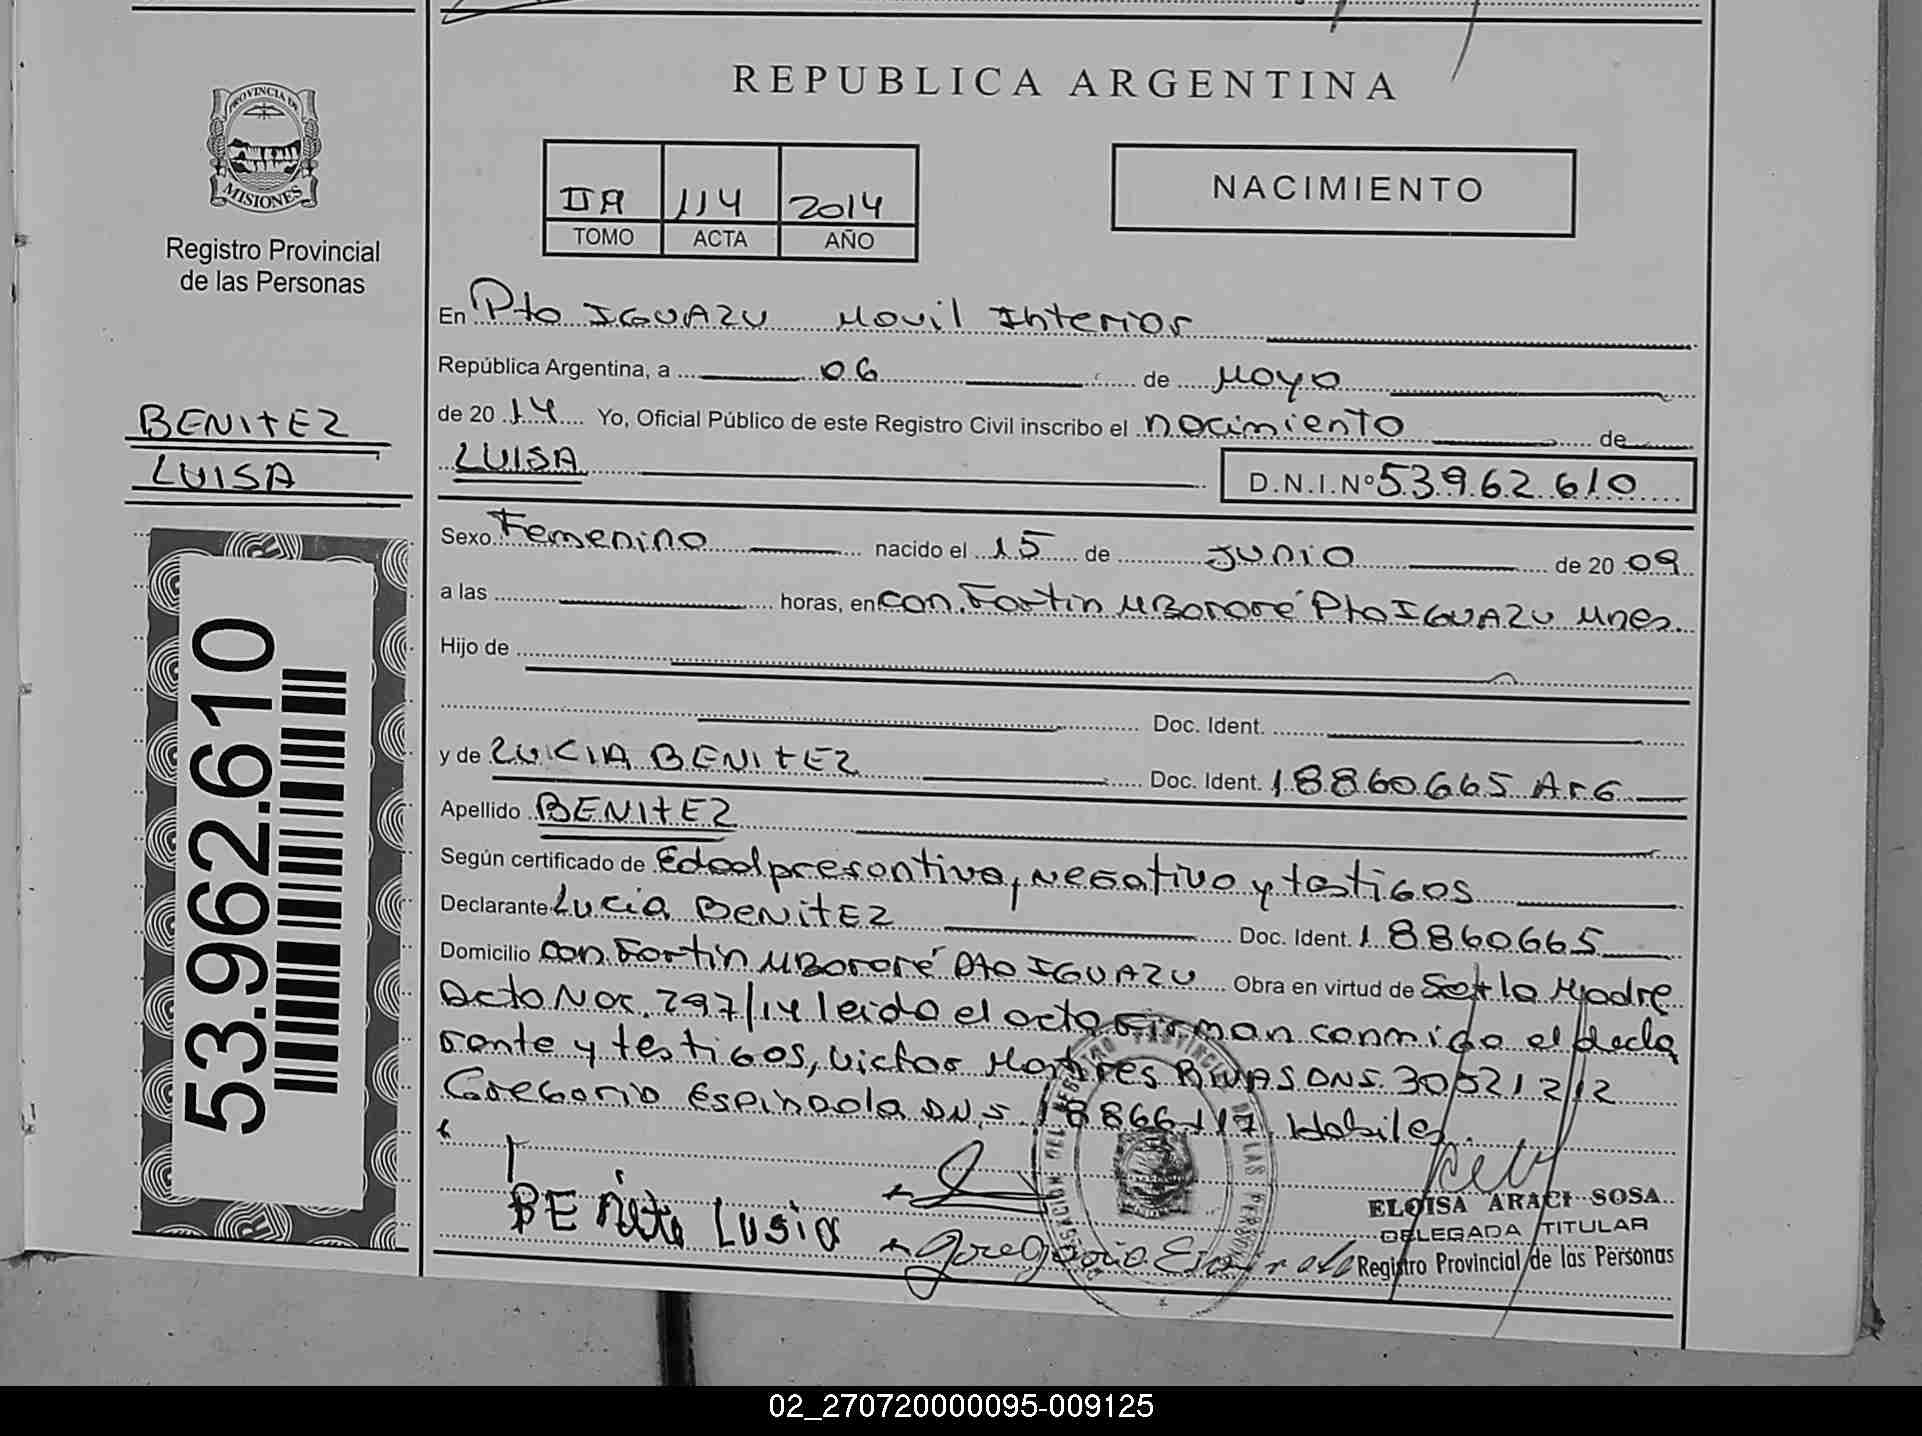 REPUBLICA ARGENTINA
PROVINCIA DE
MISIONES
Registro Provincial
de las Personas
IIA 114 2014
TOMO ACTA AÑO
NACIMIENTO
En Pto IGUAZU Movil Interior
República Argentina, a 06 de Mayo
de 2014 Yo, Oficial Público de este Registro Civil inscribo el nacimiento de
BENITEZ
LUISA
LUISA D.N.I.Nº 53962610
Sexo Femenino nacido el 15 de Junio de 2009
a las horas, en con. Fortin MBororé Pto IGUAZU Mnes.
Hijo de
Doc. Ident.
y de LUCIA BENITEZ Doc. Ident. 18860665 Arg
Apellido BENITEZ
Según certificado de Edad presontiva, negativo y testigos
Declarante Lucia BENITEZ Doc. Ident. 18860665
Domicilio con. Fortin MBororé Pto IGUAZU Obra en virtud de Sol la Madre
Acto Nac. 297/14 leido el acta firman conmigo el decla
rante y testigos, Victor Martires RIVAS DNI. 30521212
Gregorio Espindola DNI. 18866117 Habiles.
BENite LUSia
Gregorio
ELOISA ARACI SOSA
DELEGADA TITULAR
Registro Provincial de las Personas
53.962.610
02_270720000095-009125